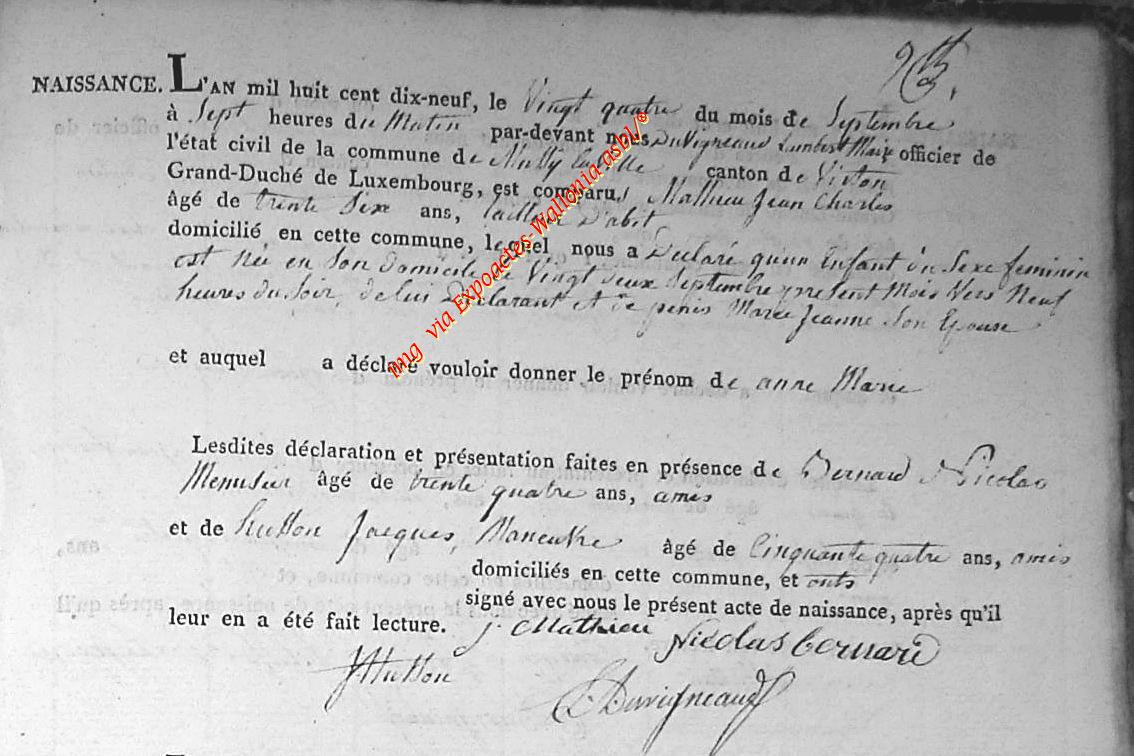 NAISSANCE. L'AN mil huit cent dix-neuf, le Vingt quatre du mois de Septembre
à Sept heures du Matin par-devant nous Duvigneaud Lambert officier de
l'état civil de la commune de la canton de Virton
Grand-Duché de Luxembourg, est comparu Mathieu Jean Charles
âgé de trente Six ans, tailleur D'abit
domicilié en cette commune, lequel nous a Déclaré qu'un Enfant du Sexe feminin
est née en Son domicile le Vingt deux Septembre présent Mois Vers Neuf
heures du Soir, de lui Déclarant et de Marie Jeanne Son Epouse
et auquel a déclaré vouloir donner le prénom de anne Marie
Lesdites déclaration et présentation faites en présence de Bernard Nicolas
Menusier âgé de trente quatre ans, amis
et de hutton Jacques, Maneuvre âgé de Cinquante quatre ans, amis
domiciliés en cette commune, et onts
signé avec nous le présent acte de naissance, après qu'il
leur en a été fait lecture. J. Mathieu Nicolas bernard
JHutton Duvigneaud
img via Expoactes-Wallonia-asbl/®